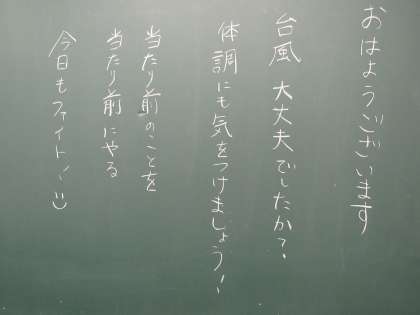 おはようございます
台風 大丈夫でしたか?
体調にも気をつけましょう!
当たり前のことを
当たり前にやる
今日もファイト!